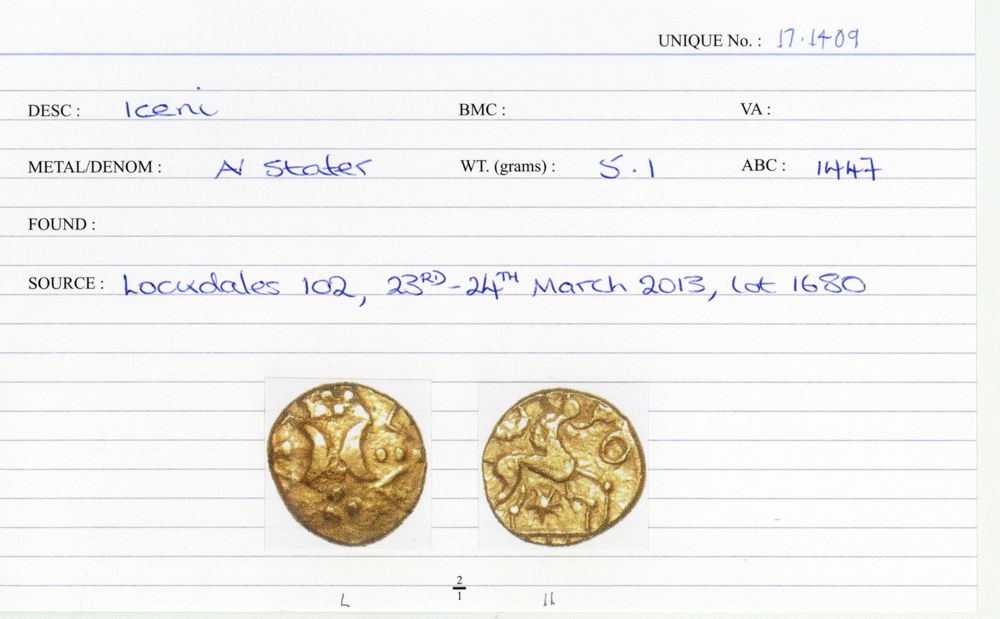 UNIQUE No. : 17.1409
DESC : Iceni BMC : VA :
METAL/DENOM : AV Stater WT. (grams) : 5.1 ABC : 1447
FOUND :
SOURCE : Lockdales 102, 23RD-24TH March 2013, Lot 1680
2
1
L 11